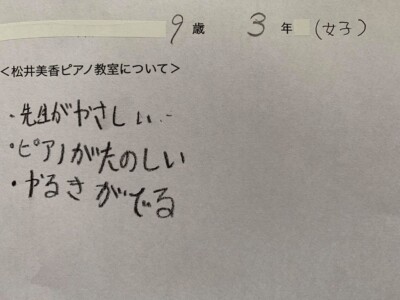 9歳 3年 (女子)
<松井美香ピアノ教室について>
・先生がやさしい
・ピアノがたのしい
・やるきがでる